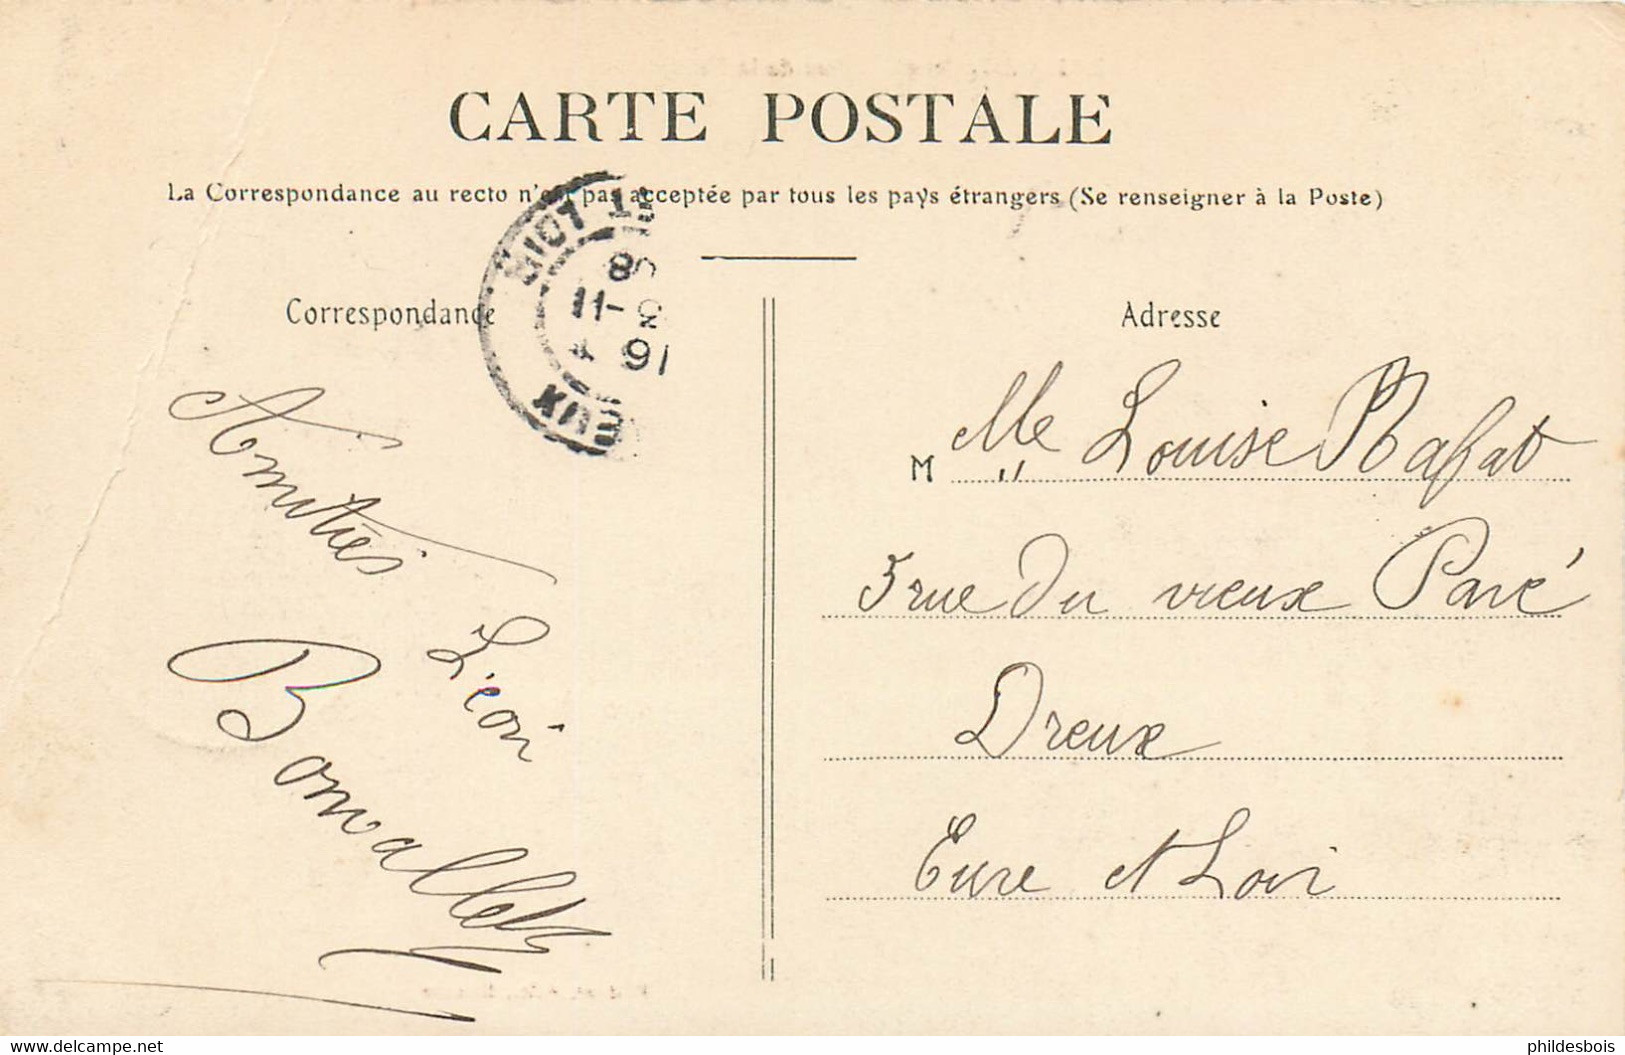 CARTE POSTALE
La Correspondance au recto n'est pas acceptée par tous les pays étrangers (Se renseigner à la Poste)
Correspondance
Amitiés
Léon
Bonvallet
EUX
8
11-
Adresse
M Mlle Louise Rafat
5 rue du vieux Pavé
Dreux
Eure et Loir
www.delcampe.net
phildesbois